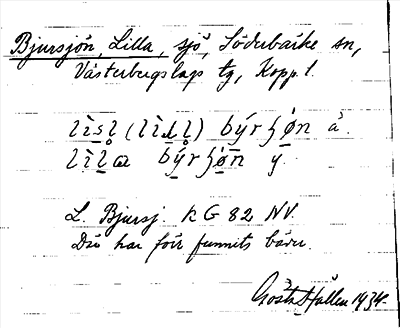 Bjursjön, Lilla, sjö, Söderbärke sn,
Västerbergslags tg, Kopp. l.
býrʒǿn å.
býrʒǿn y.
L. Bjursj. KG 82 NV.
Där har förr funnits bäver.
Gösta Hallen 1934.